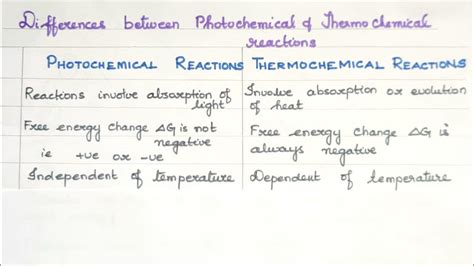 Differences between Photochemical & Thermochemical
reactions
PHOTOCHEMICAL REACTIONS
THERMOCHEMICAL REACTIONS
Reactions involve absorption of
light
Involve absorption or evolution
of heat
Free energy change ΔG is not
negative
ie +ve or -ve
Free energy change ΔG is
always negative
Independent of temperature
Dependent of temperature